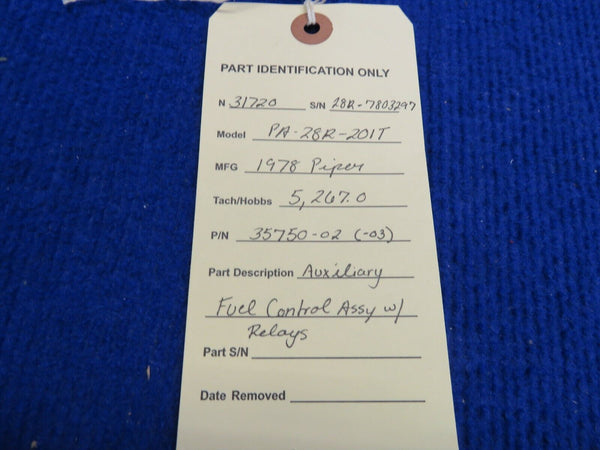 PART IDENTIFICATION ONLY
N 31720 S/N 28R-7803297
Model PA-28R-201T
MFG 1978 Piper
Tach/Hobbs 5,267.0
P/N 35750-02 (-03)
Part Description Auxiliary
Fuel Control Assy w/
Relays
Part S/N
Date Removed